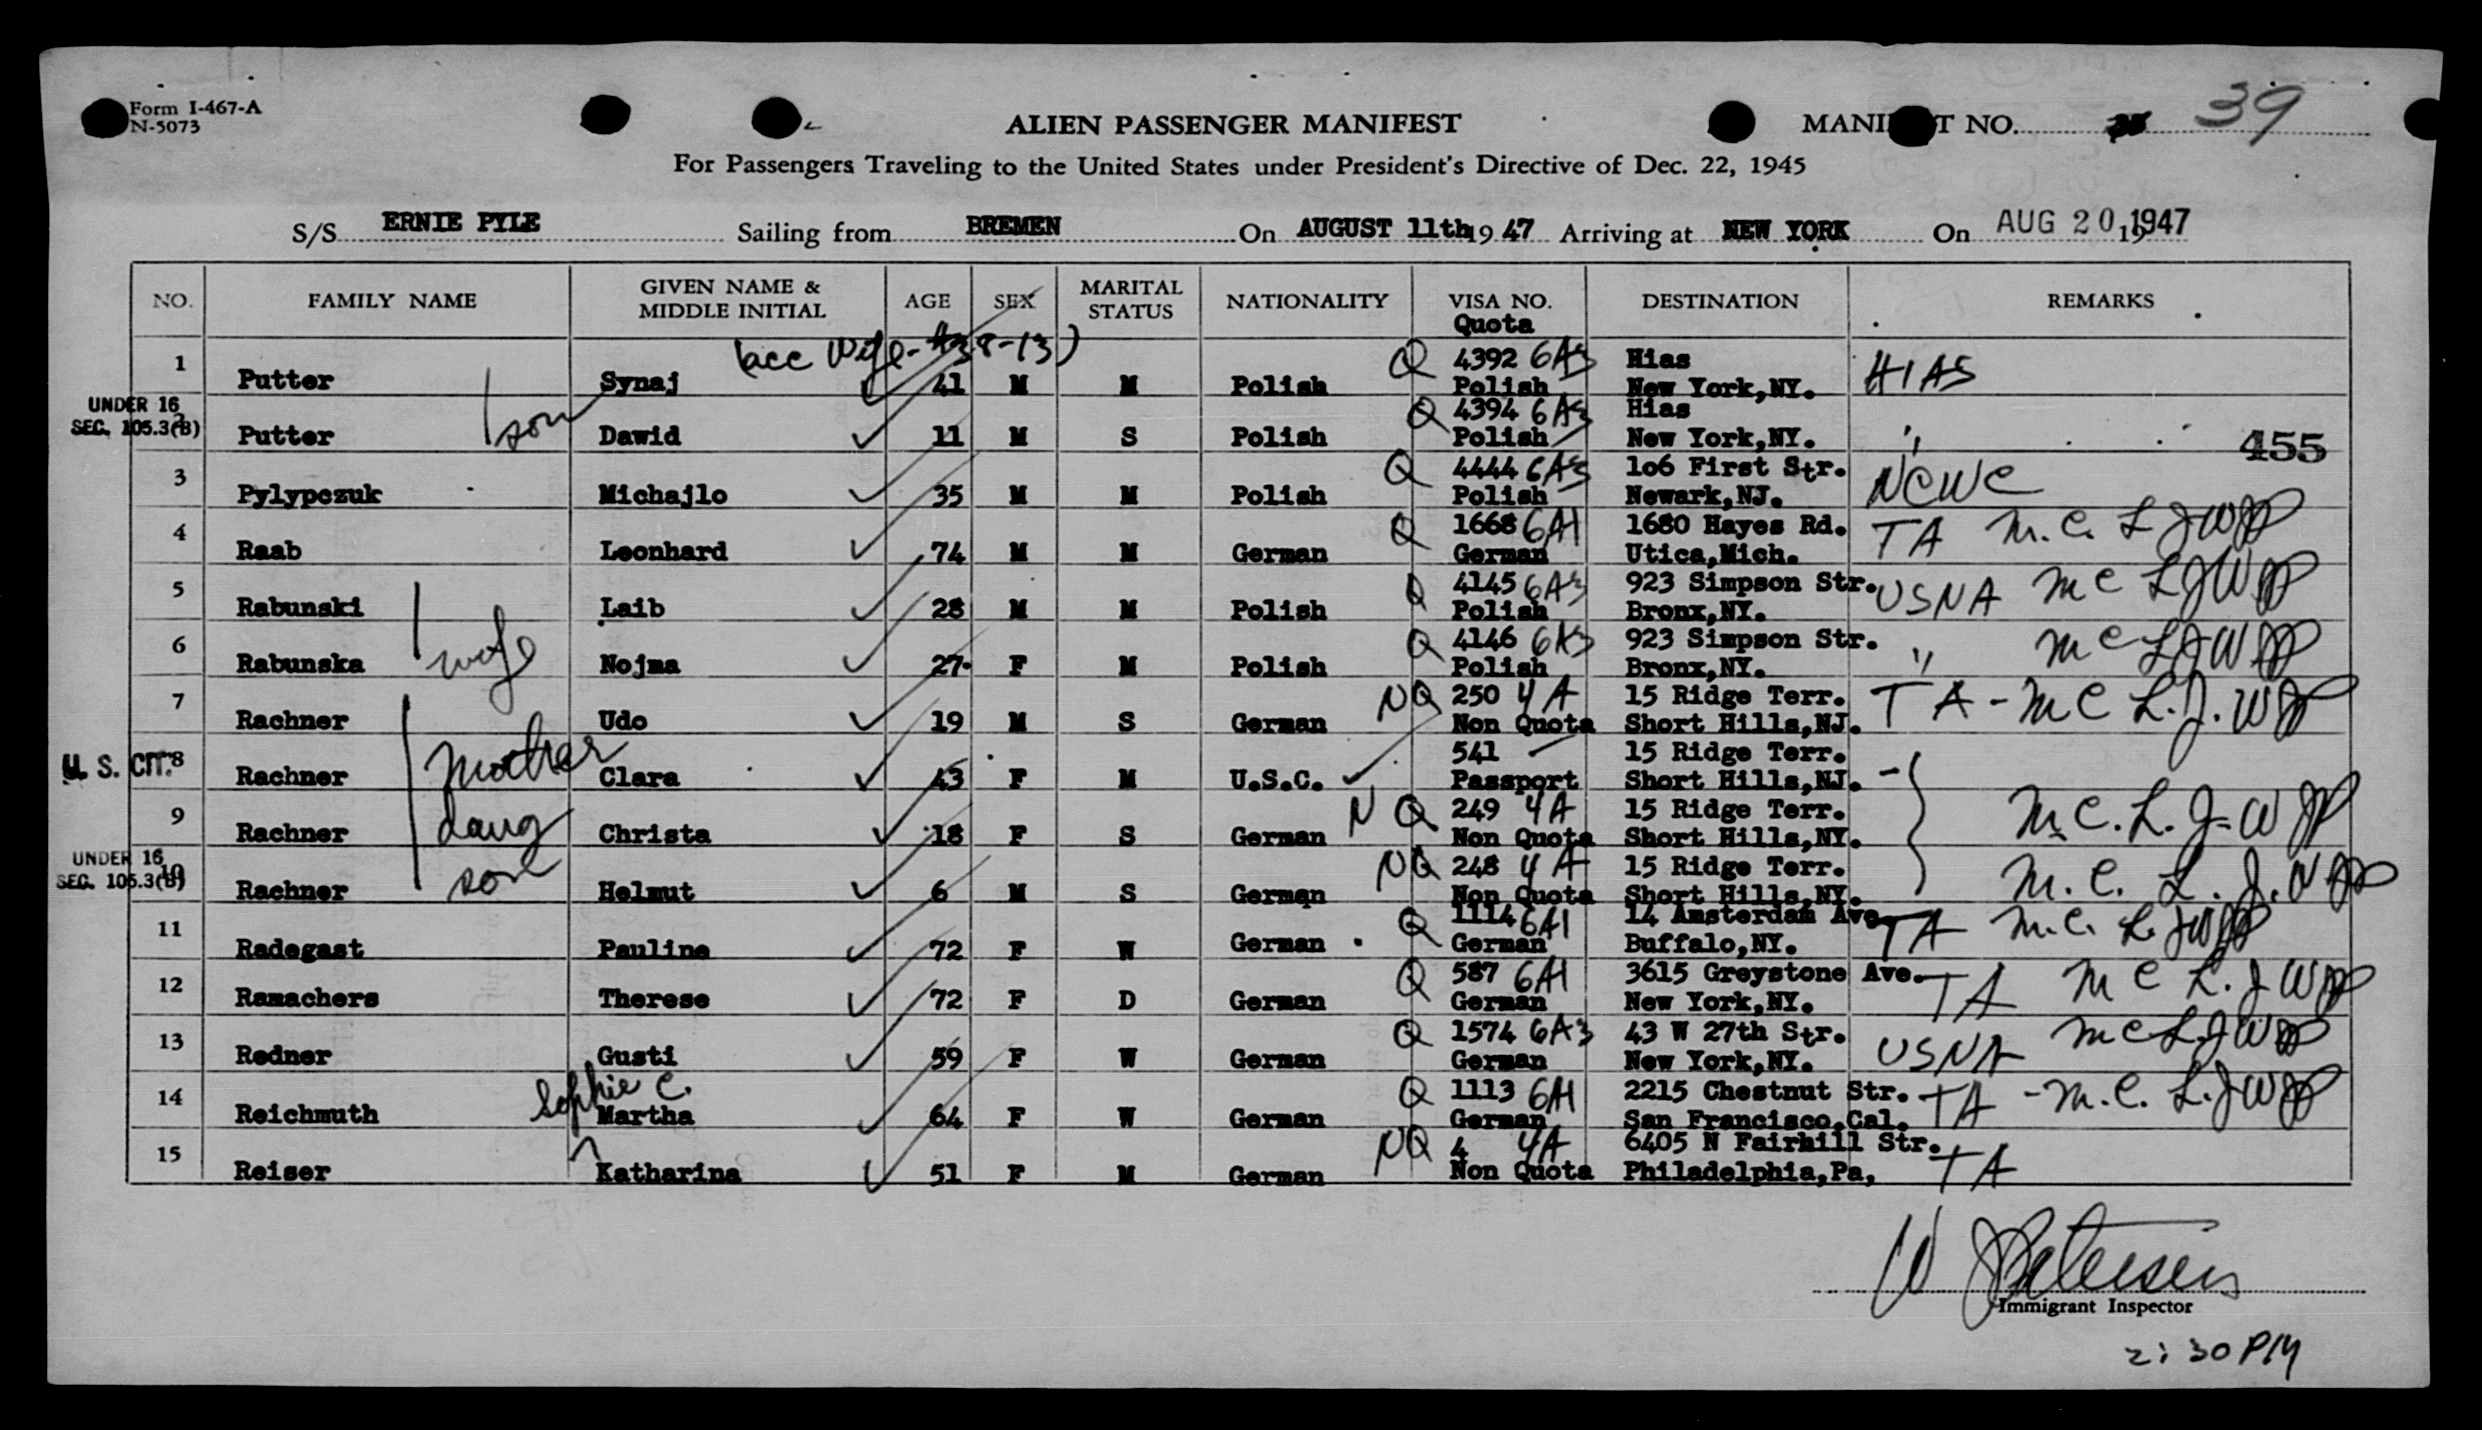 Form I-467-A
N-5073
ALIEN PASSENGER MANIFEST
MANIFEST NO. 39
For Passengers Traveling to the United States under President's Directive of Dec. 22, 1945
S/S ERNIE PYLE Sailing from BREMEN On AUGUST 11th 1947 Arriving at NEW YORK On AUG 20, 1947
NO. FAMILY NAME GIVEN NAME & MIDDLE INITIAL AGE SEX MARITAL STATUS NATIONALITY VISA NO. Quota DESTINATION REMARKS
(acc wife - #38-13)
1 Q 4392 6A3 Hias
Putter Synaj 41 M M Polish Polish New York,NY. HIAS
UNDER 16 2 Q 4394 6A3 Hias
SEC. 105.3(B) Putter son Dawid 11 M S Polish Polish New York,NY. "
455
3 Q 4444 6A3 1o6 First Str.
Pylypczuk Michajlo 35 M M Polish Polish Newark,NJ. NCWC
4 Q 1668 6A1 1680 Hayes Rd.
Raab Leonhard 74 M M German German Utica,Mich. TA M.C. L J W JP
5 Q 4145 6A3 923 Simpson Str.
Rabunski Laib 28 M M Polish Polish Bronx,NY. USNA M C L J W JP
6 Q 4146 6A3 923 Simpson Str.
Rabunska wife Nojma 27 F M Polish Polish Bronx,NY. " M C L J W JP
7 NQ 250 4A 15 Ridge Terr.
Rachner Udo 19 M S German Non Quota Short Hills,NJ. TA - M C L.J. W JP
U. S. CIT. 8 541 15 Ridge Terr.
Rachner mother Clara 43 F M U.S.C. Passport Short Hills,NJ. -
9 NQ 249 4A 15 Ridge Terr.
Rachner daug Christa 18 F S German Non Quota Short Hills,NY. M.C. L. J. W JP
UNDER 16 10 NQ 248 4A 15 Ridge Terr.
SEC. 105.3(B) Rachner son Helmut 6 M S German Non Quota Short Hills,NY. M.C. L. J. W JP
11 Q 1114 6A1 14 Amsterdam Ave.
Radegast Pauline 72 F W German German Buffalo,NY. TA M.C. L. J W JP
12 Q 587 6A1 3615 Greystone Ave.
Ramachers Therese 72 F D German German New York,NY. TA M C L. J W JP
13 Q 1574 6A3 43 W 27th Str.
Redner Gusti 59 F W German German New York,NY. USNA M C L.J W JP
14 Sophie C. Q 1113 6A1 2215 Chestnut Str.
Reichmuth Martha 64 F W German German San Francisco,Cal. TA - M.C. L.J W JP
15 NQ 4 4A 6405 N Fairhill Str.
Reiser Katharina 51 F M German Non Quota Philadelphia,Pa, TA
W J Petersen
Immigrant Inspector
2:30 PM